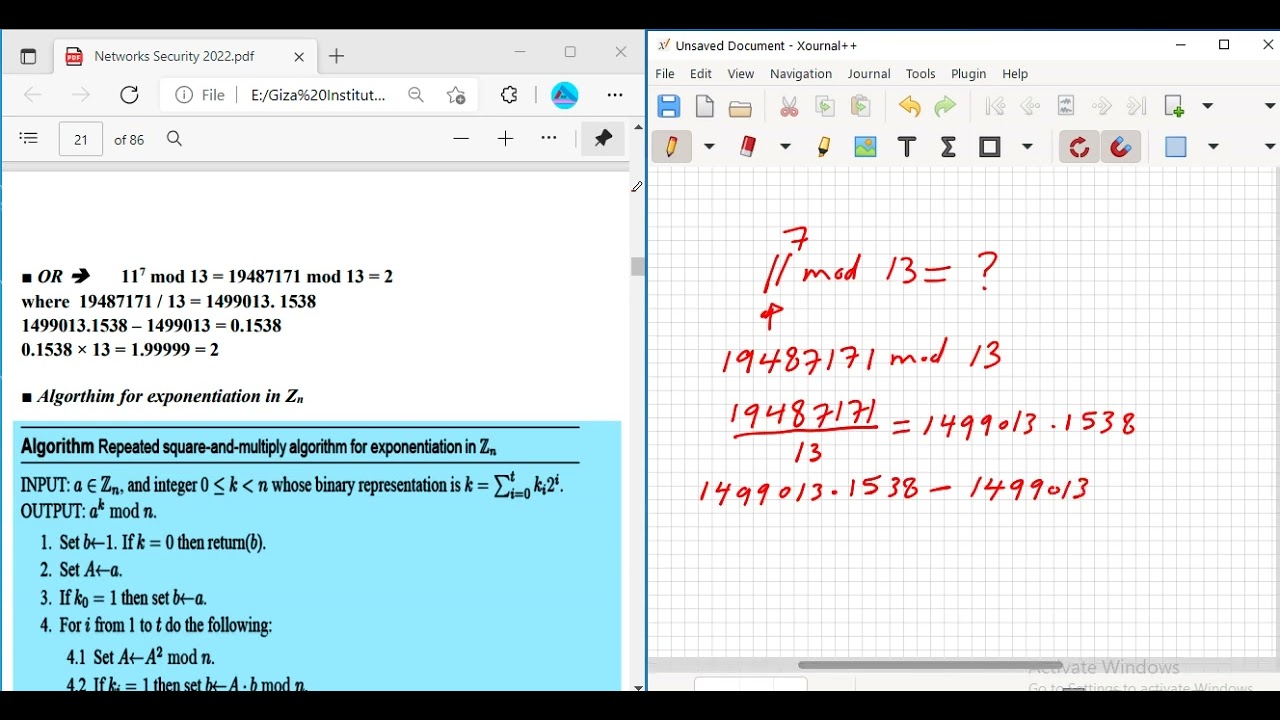 Networks Security 2022.pdf
File E:/Giza%20Institut...
21 of 86
■ OR ➔ 11⁷ mod 13 = 19487171 mod 13 = 2
where 19487171 / 13 = 1499013. 1538
1499013.1538 – 1499013 = 0.1538
0.1538 × 13 = 1.99999 = 2
■ Algorthim for exponentiation in Zₙ
Algorithm Repeated square-and-multiply algorithm for exponentiation in ℤₙ
INPUT: a ∈ ℤₙ, and integer 0 ≤ k < n whose binary representation is k = ∑ᵗᵢ₌₀ kᵢ2ⁱ.
OUTPUT: aᵏ mod n.
1. Set b←1. If k = 0 then return(b).
2. Set A←a.
3. If k₀ = 1 then set b←a.
4. For i from 1 to t do the following:
4.1 Set A←A² mod n.
4.2 If kᵢ = 1 then set b←A · b mod n.
Unsaved Document - Xournal++
File Edit View Navigation Journal Tools Plugin Help
11⁷ mod 13 = ?
19487171 mod 13
19487171
13
= 1499013.1538
1499013.1538 – 1499013
Activate Windows
Go to Settings to activate Windows.